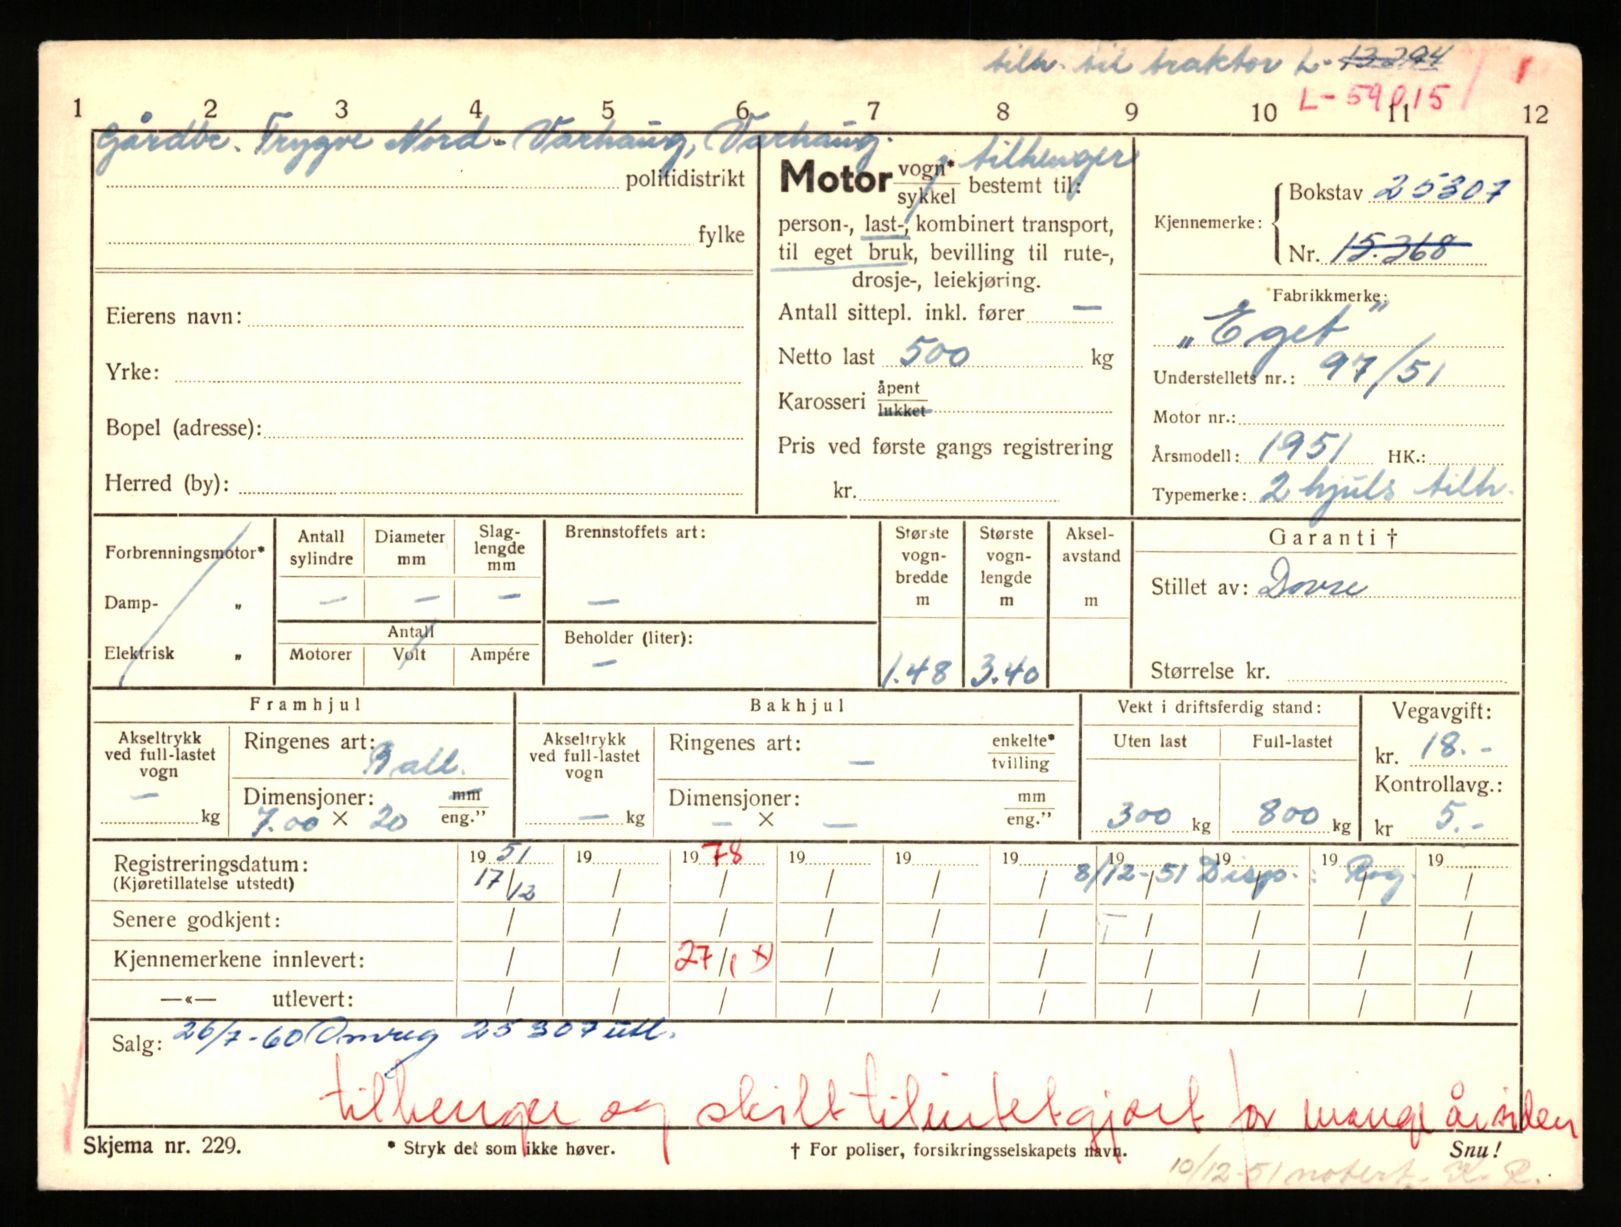 tilh. til traktor L-13294
L-59015
1 2 3 4 5 6 7 8 9 10 11 12
Gårdbr. Trygve Nord-Varhaug, Varhaug.
politidistrikt
fylke
Eierens navn:
Yrke:
Bopel (adresse):
Herred (by):
tilhenger
Motor vogn* / sykkel bestemt til:
person-, last-, kombinert transport,
til eget bruk, bevilling til rute-,
drosje-, leiekjøring.
Antall sittepl. inkl. fører —
Netto last 500 kg
Karosseri åpent / lukket
Pris ved første gangs registrering
kr.
Kjennemerke: Bokstav 25307
Nr. 15.368
Fabrikkmerke:
„Eget”
Understellets nr.: 97/51
Motor nr.:
Årsmodell: 1951 HK.:
Typemerke: 2 hjuls tilh.
Forbrenningsmotor*
Damp- „
Elektrisk „
Antall sylindre —
Diameter mm —
Slag-lengde mm —
Antall
Motorer Volt Ampére
Brennstoffets art:
—
Beholder (liter):
—
Største vogn-bredde m 1.48
Største vogn-lengde m 3.40
Aksel-avstand m
Garanti †
Stillet av: Dovre
Størrelse kr.
Framhjul
Akseltrykk ved full-lastet vogn — kg
Ringenes art: Ball.
Dimensjoner: mm / eng.”
7.00 × 20
Bakhjul
Akseltrykk ved full-lastet vogn — kg
Ringenes art: — enkelte* / tvilling
Dimensjoner: mm / eng.”
— × —
Vekt i driftsferdig stand:
Uten last Full-lastet
300 kg 800 kg
Vegavgift:
kr. 18.-
Kontrollavg.:
kr 5.-
Registreringsdatum: 19 51 19 19 78 19 19 19 19 19 19 19
(Kjøretillatelse utstedt) 17/12 / / / / / 8/12-51 Disp. : Rog.
Senere godkjent: / / / / / / / / / /
Kjennemerkene innlevert: / / 27/1 x) / / / / / / /
—«— utlevert: / / / / / / / / / /
Salg: 26/7-60 Omreg 25307 utl.
tilhenger og skilt tilintetgjort for mange år siden
Skjema nr. 229. * Stryk det som ikke høver. † For poliser, forsikringsselskapets navn. Snu!
10/12-51 notert. K. R.